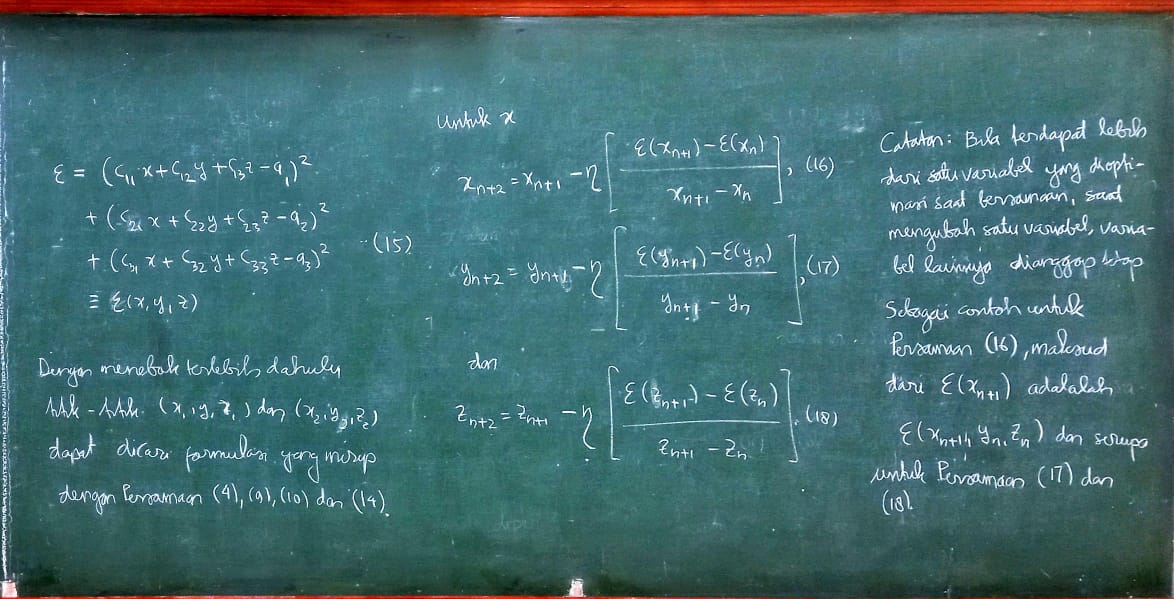 ε = (c₁₁x+c₁₂y+c₁₃z−q₁)²
+ (c₂₁x+c₂₂y+c₂₃z−q₂)²
+ (c₃₁x+c₃₂y+c₃₃z−q₃)² ..(15)
≡ ε(x,y,z)
Dengan menebak terlebih dahulu
titik-titik (x₁,y₁,z₁) dan (x₂,y₂,z₂)
dapat dicari formulasi yang mirip
dengan Persamaan (4),(9),(10) dan (14).
Untuk x
xₙ₊₂ = xₙ₊₁ − η [ (ε(xₙ₊₁)−ε(xₙ)) / (xₙ₊₁ − xₙ) ], (16)
yₙ₊₂ = yₙ₊₁ − η [ (ε(yₙ₊₁)−ε(yₙ)) / (yₙ₊₁ − yₙ) ], (17)
dan
zₙ₊₂ = zₙ₊₁ − η [ (ε(zₙ₊₁) − ε(zₙ)) / (zₙ₊₁ − zₙ) ]. (18)
Catatan: Bila terdapat lebih
dari satu variabel yang diopti-
masi saat bersamaan, saat
mengubah satu variabel, varia-
bel lainnya dianggap tetap
Sebagai contoh untuk
Persamaan (16), maksud
dari ε(xₙ₊₁) adalalah
ε(xₙ₊₁, yₙ, zₙ) dan serupa
untuk Persamaan (17) dan
(18).